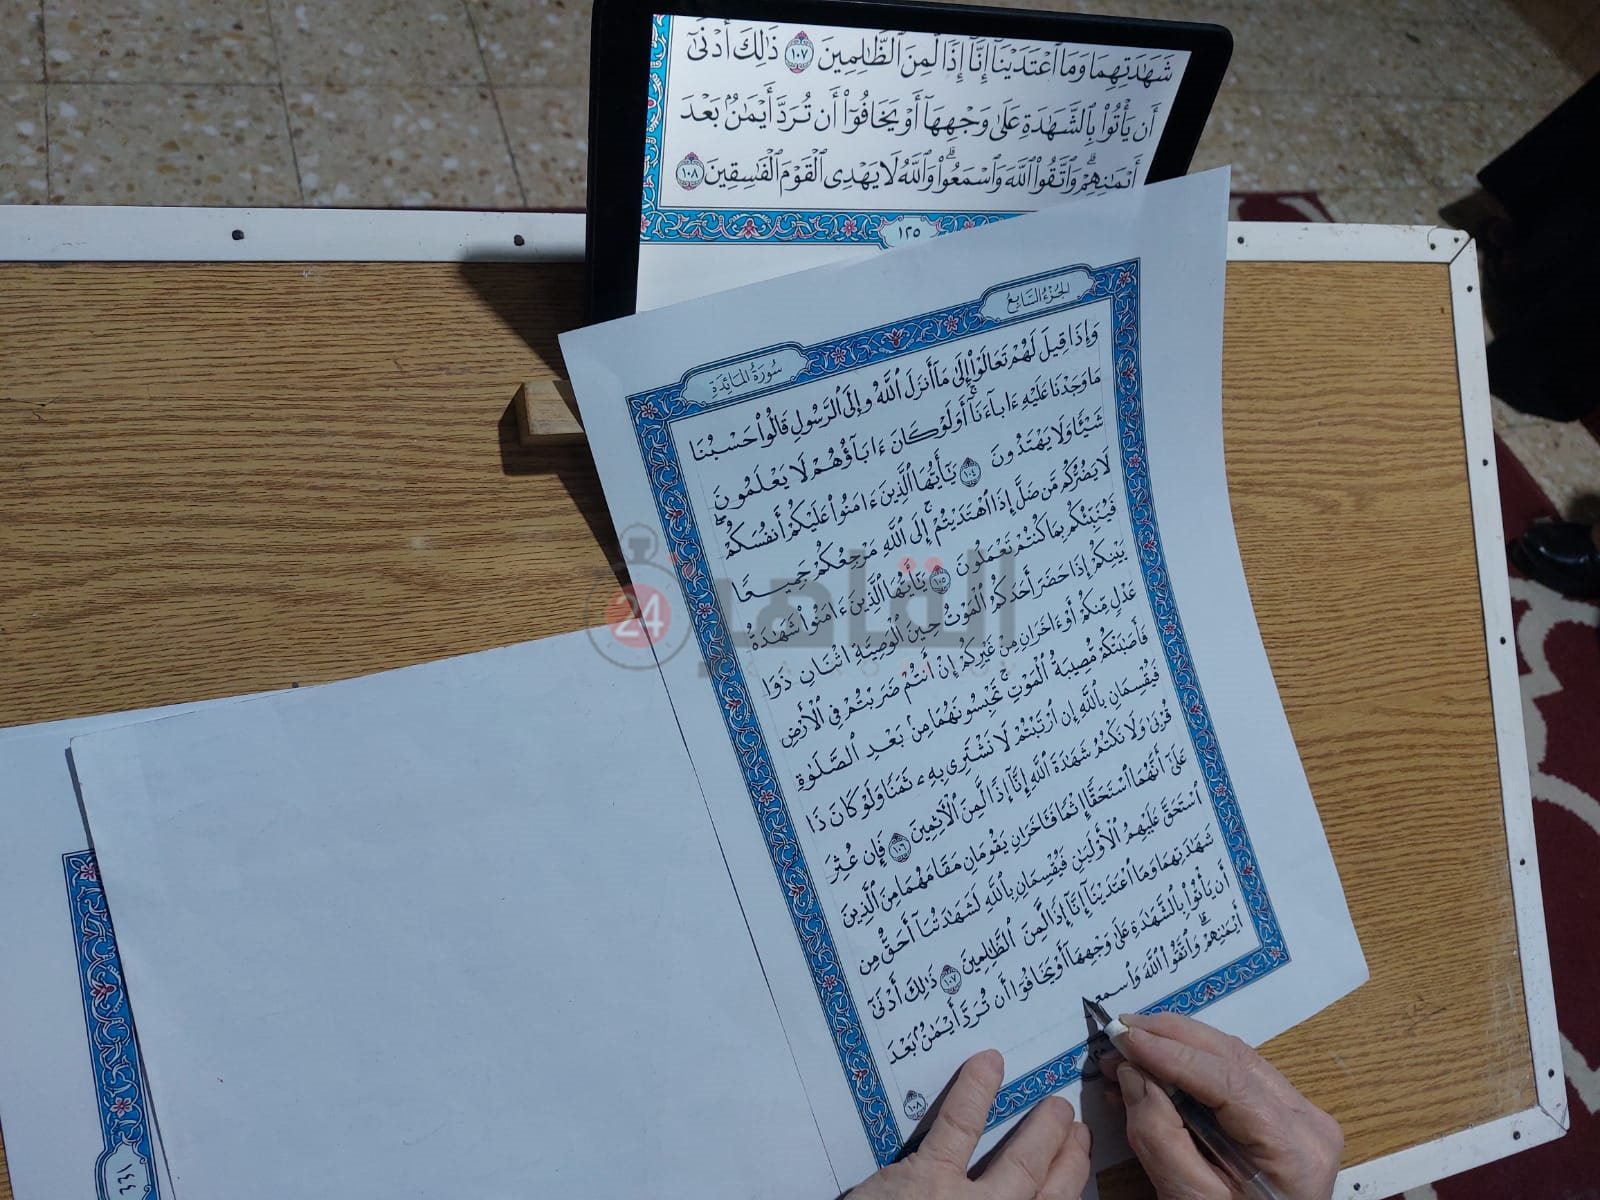 شَهَـٰدَتِهِمَا وَمَا ٱعْتَدَيْنَآ إِنَّآ إِذًا لَّمِنَ ٱلظَّـٰلِمِينَ ١٠٧ ذَٰلِكَ أَدْنَىٰٓ
أَن يَأْتُوا۟ بِٱلشَّهَـٰدَةِ عَلَىٰ وَجْهِهَآ أَوْ يَخَافُوٓا۟ أَن تُرَدَّ أَيْمَـٰنٌۢ بَعْدَ
أَيْمَـٰنِهِمْ ۗ وَٱتَّقُوا۟ ٱللَّهَ وَٱسْمَعُوا۟ ۗ وَٱللَّهُ لَا يَهْدِى ٱلْقَوْمَ ٱلْفَـٰسِقِينَ ١٠٨
١٢٥
الجُزْءُ السَّابِعُ
سُورَةُ المَائِدَةِ
وَإِذَا قِيلَ لَهُمْ تَعَالَوْا۟ إِلَىٰ مَآ أَنزَلَ ٱللَّهُ وَإِلَى ٱلرَّسُولِ قَالُوا۟ حَسْبُنَا
مَا وَجَدْنَا عَلَيْهِ ءَابَآءَنَآ ۚ أَوَلَوْ كَانَ ءَابَآؤُهُمْ لَا يَعْلَمُونَ
شَيْـًٔا وَلَا يَهْتَدُونَ ١٠٤ يَـٰٓأَيُّهَا ٱلَّذِينَ ءَامَنُوا۟ عَلَيْكُمْ أَنفُسَكُمْ ۖ
لَا يَضُرُّكُم مَّن ضَلَّ إِذَا ٱهْتَدَيْتُمْ ۚ إِلَى ٱللَّهِ مَرْجِعُكُمْ جَمِيعًا
فَيُنَبِّئُكُم بِمَا كُنتُمْ تَعْمَلُونَ ١٠٥ يَـٰٓأَيُّهَا ٱلَّذِينَ ءَامَنُوا۟ شَهَـٰدَةُ
بَيْنِكُمْ إِذَا حَضَرَ أَحَدَكُمُ ٱلْمَوْتُ حِينَ ٱلْوَصِيَّةِ ٱثْنَانِ ذَوَا
عَدْلٍ مِّنكُمْ أَوْ ءَاخَرَانِ مِنْ غَيْرِكُمْ إِنْ أَنتُمْ ضَرَبْتُمْ فِى ٱلْأَرْضِ
فَأَصَـٰبَتْكُم مُّصِيبَةُ ٱلْمَوْتِ ۚ تَحْبِسُونَهُمَا مِنۢ بَعْدِ ٱلصَّلَوٰةِ
فَيُقْسِمَانِ بِٱللَّهِ إِنِ ٱرْتَبْتُمْ لَا نَشْتَرِى بِهِۦ ثَمَنًا وَلَوْ كَانَ ذَا
قُرْبَىٰ ۙ وَلَا نَكْتُمُ شَهَـٰدَةَ ٱللَّهِ إِنَّآ إِذًا لَّمِنَ ٱلْـَٔاثِمِينَ ١٠٦ فَإِنْ عُثِرَ
عَلَىٰٓ أَنَّهُمَا ٱسْتَحَقَّآ إِثْمًا فَـَٔاخَرَانِ يَقُومَانِ مَقَامَهُمَا مِنَ ٱلَّذِينَ
ٱسْتَحَقَّ عَلَيْهِمُ ٱلْأَوْلَيَـٰنِ فَيُقْسِمَانِ بِٱللَّهِ لَشَهَـٰدَتُنَآ أَحَقُّ مِن
شَهَـٰدَتِهِمَا وَمَا ٱعْتَدَيْنَآ إِنَّآ إِذًا لَّمِنَ ٱلظَّـٰلِمِينَ ١٠٧ ذَٰلِكَ أَدْنَىٰٓ
أَن يَأْتُوا۟ بِٱلشَّهَـٰدَةِ عَلَىٰ وَجْهِهَآ أَوْ يَخَافُوٓا۟ أَن تُرَدَّ أَيْمَـٰنٌۢ بَعْدَ
أَيْمَـٰنِهِمْ ۗ وَٱتَّقُوا۟ ٱللَّهَ وَٱسْمَعُ ١٠٨
القاهرة 24